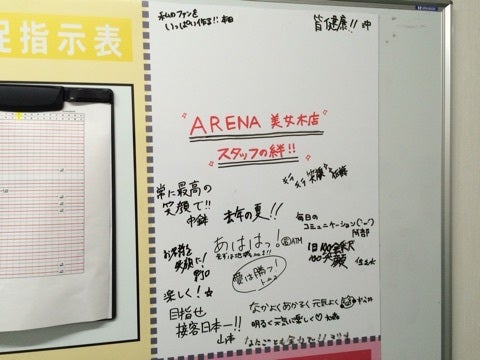 足指示表
私のファンを
いっぱい作る!!
皆健康!! 沖
"ARENA 美女木店"
"スタッフの絆!!"
常に最高の
笑顔で!!
中鉢
去年の夏!!
毎日の
コミュニケーション
阿部
お客様を
笑顔に!
あははっ!
ATM
愛は勝つ!
1日100会釈
100笑顔
楽しく!
目指せ
接客日本一!!
山本
なかよくあかるく元気よく
明るく元気に楽しく♡